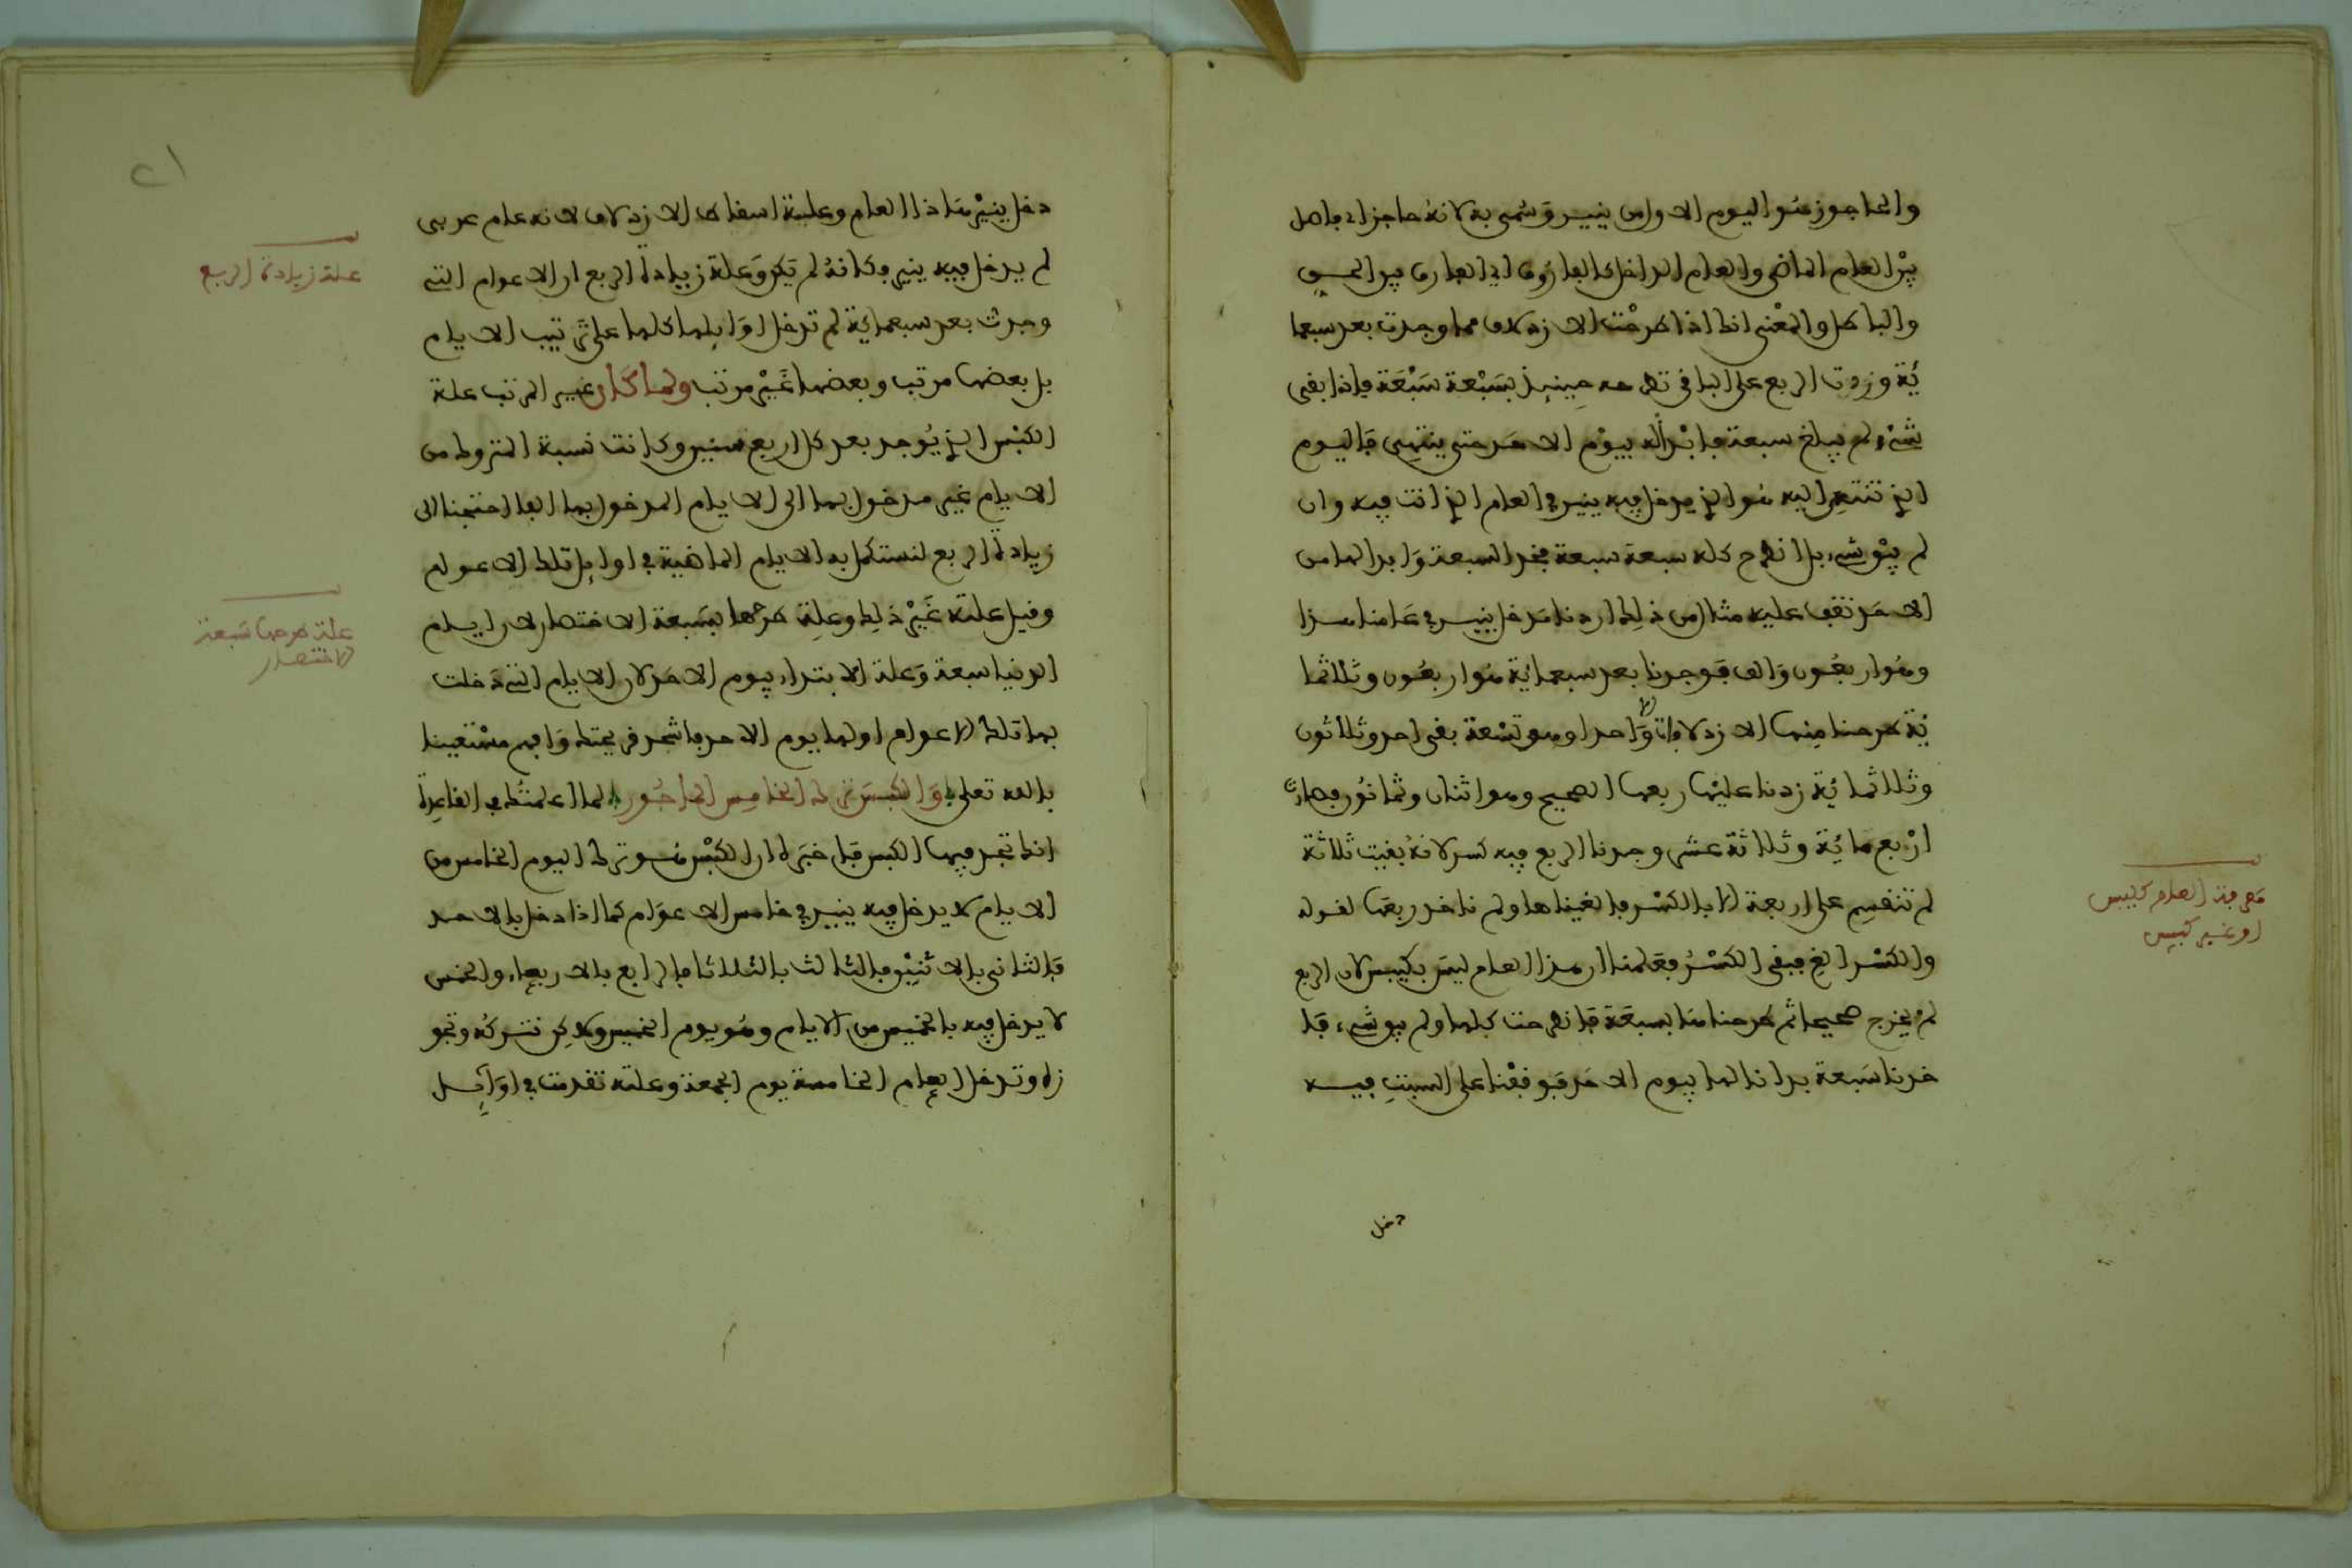 والحاجوز هو اليوم الاول من ينيير وسمي به لانه حاجز اي فاصل
بين العام الماضي والعام الداخل كالفاروق اي الفارق بين الحق
والباطل والمعنى انك اذا طرحت الازدلاف مما وجدت بعد سبعما
ئة وزدت الربع على الباقي تطرحه حينئذ بسبعة سبعة فاذا بقي
شيء ولم يبلغ سبعة فابدأ له بيوم الاحد حتى ينتهي فاليوم
الذي تنتهي اليه هو الذي يدخل فيه ينير في العام الذي انت فيه وان
لم يبق شيء بل انطرح كله سبعة سبعة فخذ السبعة وابدا لها من
الاحد تقف عليه مثال من ذلك اردنا مدخل ينيير في عامنا هذا
وهو اربعون والف فوجدنا بعد سبعمائة هو اربعون وثلاثما
ئة طرحنا منها الازدلافات الا واحدا وهو تسعة بقي احد وثلاثون
وثلاثمائة زدنا عليها ربعها الصحيح وهو اثنان وثمانون فصارت
اربع مائة وثلاثة عشر وجدنا الربع فيه كسر لانه بقيت ثلاثة
لم تنقسم على اربعة الا بالكسر فالغيناها ولم ناخذ ربعها لقوله
والكسر الغ فبقي الكسر فعلمنا ان هذا العام ليس بكبيس لان الربع
لم يخرج صحيحا ثم طرحنا هنا بسبعة فانطرحت كلها ولم يبق شيء فا
خذنا سبعة بدانا لها بيوم الاحد فوقفنا على السبت فيه
دخل
معرفة العام كبيس
او غير كبيس
٢١
دخل ينير هذا العام وعلية اسقاط الازدلاف لانه عام عربي
لم يدخل فيه ينير وكانه لم يكن وعلة زيادة الربع ان الاعوام التي
وجدت بعد سبعمائة لم تدخل اوايلها كلها على ترتيب الايام
بل بعضها مرتب وبعضها غير مرتب ولما كان غير المرتب علة
الكبس الذي يوجد بعد كل اربع سنين وكانت نسبة المتروك من
الايام غير مدخول بها الى الايام المدخول بها احتجنا الى
زيادة الربع لنستكمل به الايام الماضية في اوايل تلك الاعوام
وقيل علته غير ذلك وعلة طرحها بسبعة الاختصار لان ايام
الدنيا سبعة وعلة الابتداء بيوم الاحد لان الايام التي دخلت
بها تلك الاعوام اولها يوم الاحد فاشحذ قريحتك وافهم مستعينا
بالله تعلى والكبس ترك الخامس الماجور لما اعلمتك في القاعدة
انك تجد فيها الكبس قال خبرك ان الكبس هو ترك اليوم الخامس من
الايام لا يدخل فيه ينيير في خامس الاعوام كما اذا دخل بالاحد
فالثاني بالاثنين فالثالث بالثلاثا فالرابع بالاربعاء والخمس
لا يدخل فيه بالخميس من الايام وهو يوم الخميس ولاكن نتركه ونجو
زه وتدخل العام الخامسة يوم الجمعة وعلته تقدمت في اوايل
علة زيادة الربع
علة طرحها بسبعة
الاختصار